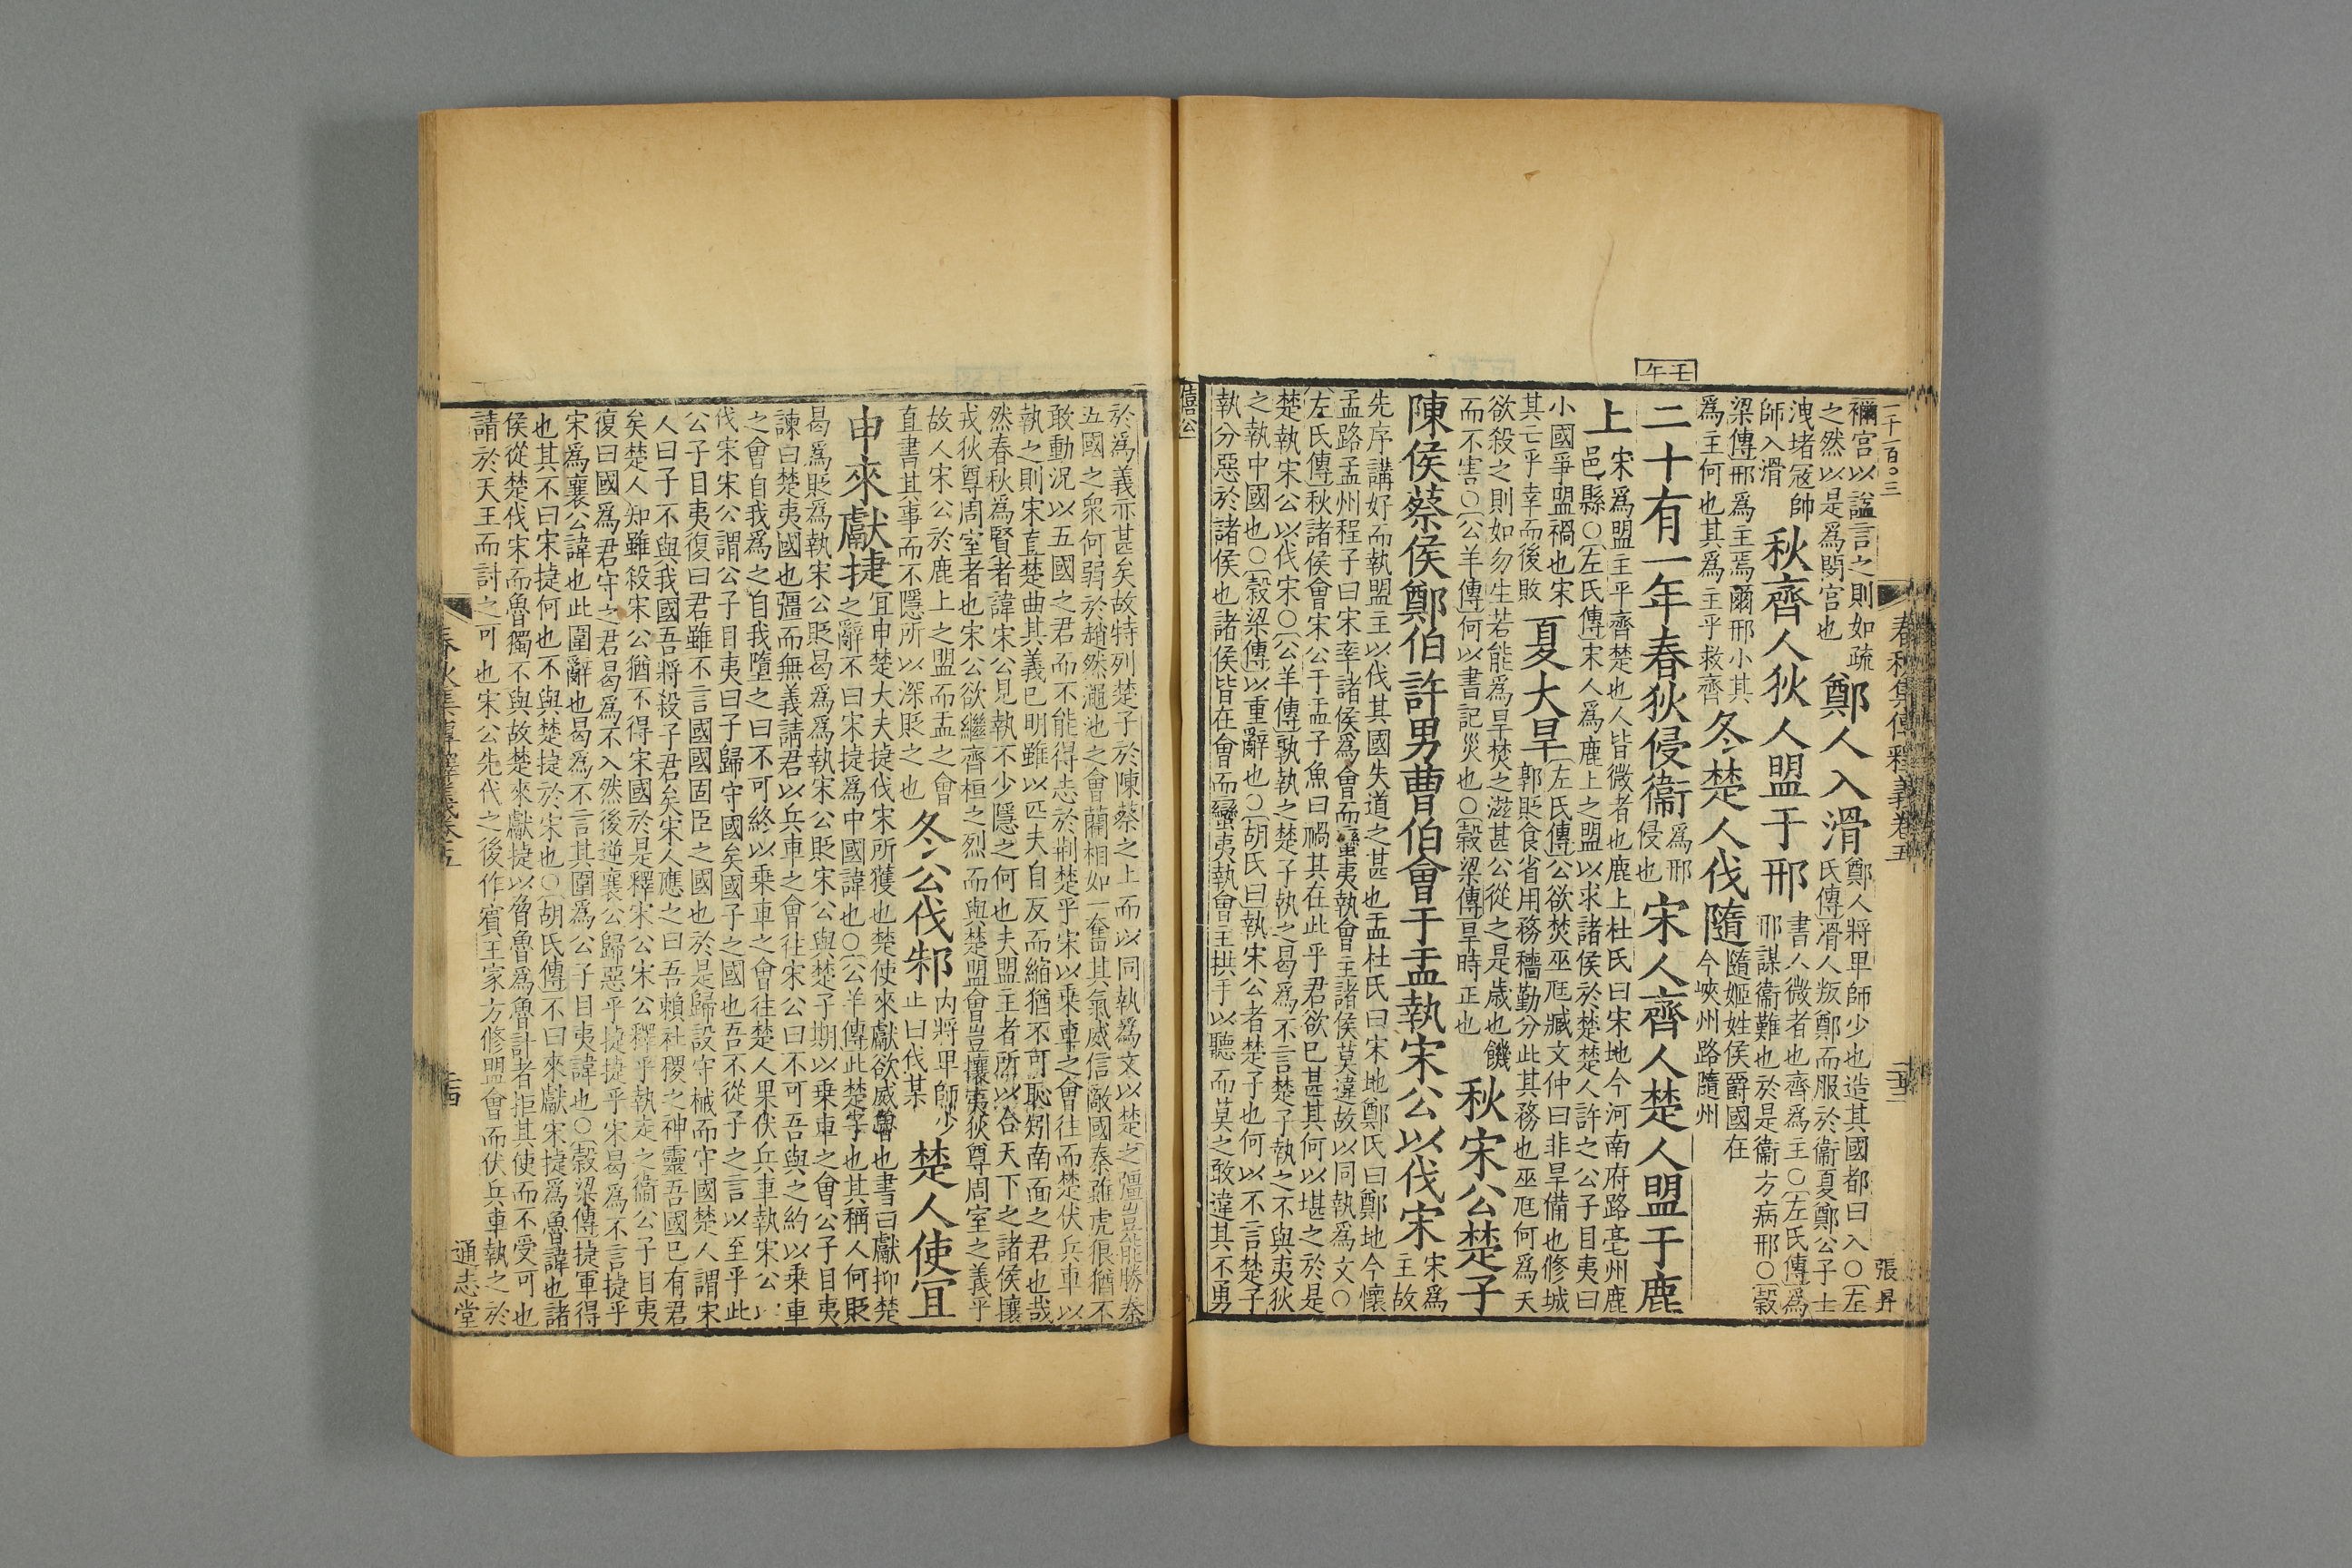 二千一百○三
春秋集傳釋義卷五
二十三
張昇
禰宮以諡言之則如疏
之然以是爲閔宮也
鄭人入滑
鄭人將卑師少也造其國都曰入○左
氏傳滑人叛鄭而服於衞夏鄭公子士
洩堵寇帥
師入滑
秋齊人狄人盟于邢
書人微者也齊爲主○左氏傳爲
邢謀衞難也於是衞方病邢○穀
梁傳邢爲主焉爾邢小其
爲主何也其爲主乎救齊
冬楚人伐隨
隨姬姓侯爵國在
今峽州路隨州
壬午
二十有一年春狄侵衞
爲邢
侵也
宋人齊人楚人盟于鹿
上
宋爲盟主乎齊楚也人皆微者也鹿上杜氏曰宋地今河南府路亳州鹿
邑縣○左氏傳宋人爲鹿上之盟以求諸侯於楚楚人許之公子目夷曰
小國爭盟禍也宋
其亡乎幸而後敗
夏大旱
左氏傳公欲焚巫尫臧文仲曰非旱備也修城
郭貶食省用務穡勤分此其務也巫尫何爲天
欲殺之則如勿生若能爲旱焚之滋甚公從之是歲也饑
而不害○公羊傳何以書記災也○穀梁傳旱時正也
秋宋公楚子
陳侯蔡侯鄭伯許男曹伯會于盂執宋公以伐宋
宋爲
主故
先序講好而執盟主以伐其國失道之甚也盂杜氏曰宋地鄭氏曰鄭地今懷
孟路孟州程子曰宋率諸侯爲會而蠻夷執會主諸侯莫違故以同執爲文○
左氏傳秋諸侯會宋公于盂子魚曰禍其在此乎君欲已甚其何以堪之於是
楚執宋公以伐宋○公羊傳孰執之楚子執之曷爲不言楚子執之不與夷狄
之執中國也○穀梁傳以重辭也○胡氏曰執宋公者楚子也何以不言楚子
執分惡於諸侯也諸侯皆在會而蠻夷執會主拱手以聽而莫之敢違其不勇
僖公
於爲義亦甚矣故特列楚子於陳蔡之上而以同執爲文以楚之彊豈能勝秦
五國之衆何弱於趙然澠池之會藺相如一奮其氣威信敵國秦雖虎狼猶不
敢動況以五國之君而不能得志於荆楚乎宋以乘車之會往而楚伏兵車以
執之則宋直楚曲其義已明雖以匹夫自反而縮猶不可恥矧南面之君也哉
然春秋爲賢者諱宋公見執不少隱之何也夫盟主者所以合天下之諸侯攘
戎狄尊周室者也宋公欲繼齊桓之烈而與楚盟會豈攘夷狄尊周室之義乎
故人宋公於鹿上之盟而盂之會
直書其事而不隱所以深貶之也
冬公伐邾
内將卑師少
止曰伐某
楚人使宜
申來獻捷
宜申楚大夫捷伐宋所獲也楚使來獻欲威魯也書曰獻抑楚
之辭不曰宋捷爲中國諱也○公羊傳此楚子也其稱人何貶
曷爲貶爲執宋公貶曷爲爲執宋公貶宋公與楚子期以乘車之會公子目夷
諫曰楚夷國也彊而無義請君以兵車之會往宋公曰不可吾與之約以乘車
之會自我爲之自我隳之曰不可終以乘車之會往楚人果伏兵車執宋公以
伐宋宋公謂公子目夷曰子歸守國矣國子之國也吾不從子之言以至乎此
公子目夷復曰君雖不言國國固臣之國也於是歸設守械而守國楚人謂宋
人曰子不與我國吾將殺子君矣宋人應之曰吾賴社稷之神靈吾國已有君
矣楚人知雖殺宋公猶不得宋國於是釋宋公宋公釋乎執走之衞公子目夷
復曰國爲君守之君曷爲不入然後逆襄公歸惡乎捷捷乎宋曷爲不言捷乎
宋爲襄公諱也此圍辭也曷爲不言其圍爲公子目夷諱也○穀梁傳捷軍得
也其不曰宋捷何也不與楚捷於宋也○胡氏傳不曰來獻宋捷爲魯諱也諸
侯從楚伐宋而魯獨不與故楚來獻捷以脅魯爲魯計者拒其使而不受可也
請於天王而討之可也宋公先代之後作賓王家方修盟會而伏兵車執之於
春秋集傳釋義卷五
二十四
通志堂